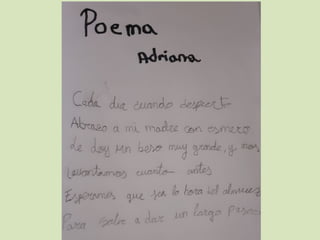 Poema
Adriana
Cada dia cuando despierto
Abrazo a mi madre con esmero
Le doy un beso muy grande, y nos
Levantamos cuanto antes
Esperamos que sea la hora del almuerzo
Para salir a dar un largo paseo